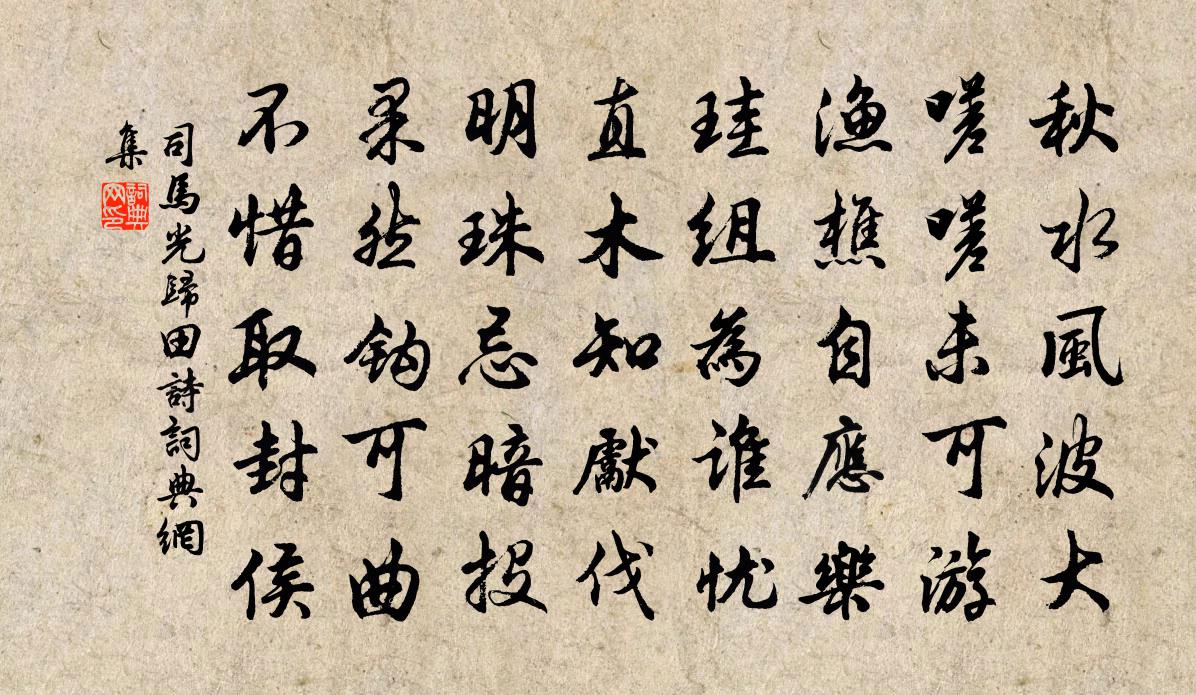 秋水風波大
嗟嗟未可游
漁樵自應樂
珪組為誰忧
直木知獻伐
明珠忌暗投
果然鈎可曲
不惜取封侯
司馬光歸田詩詞典網
集
詞典
网印